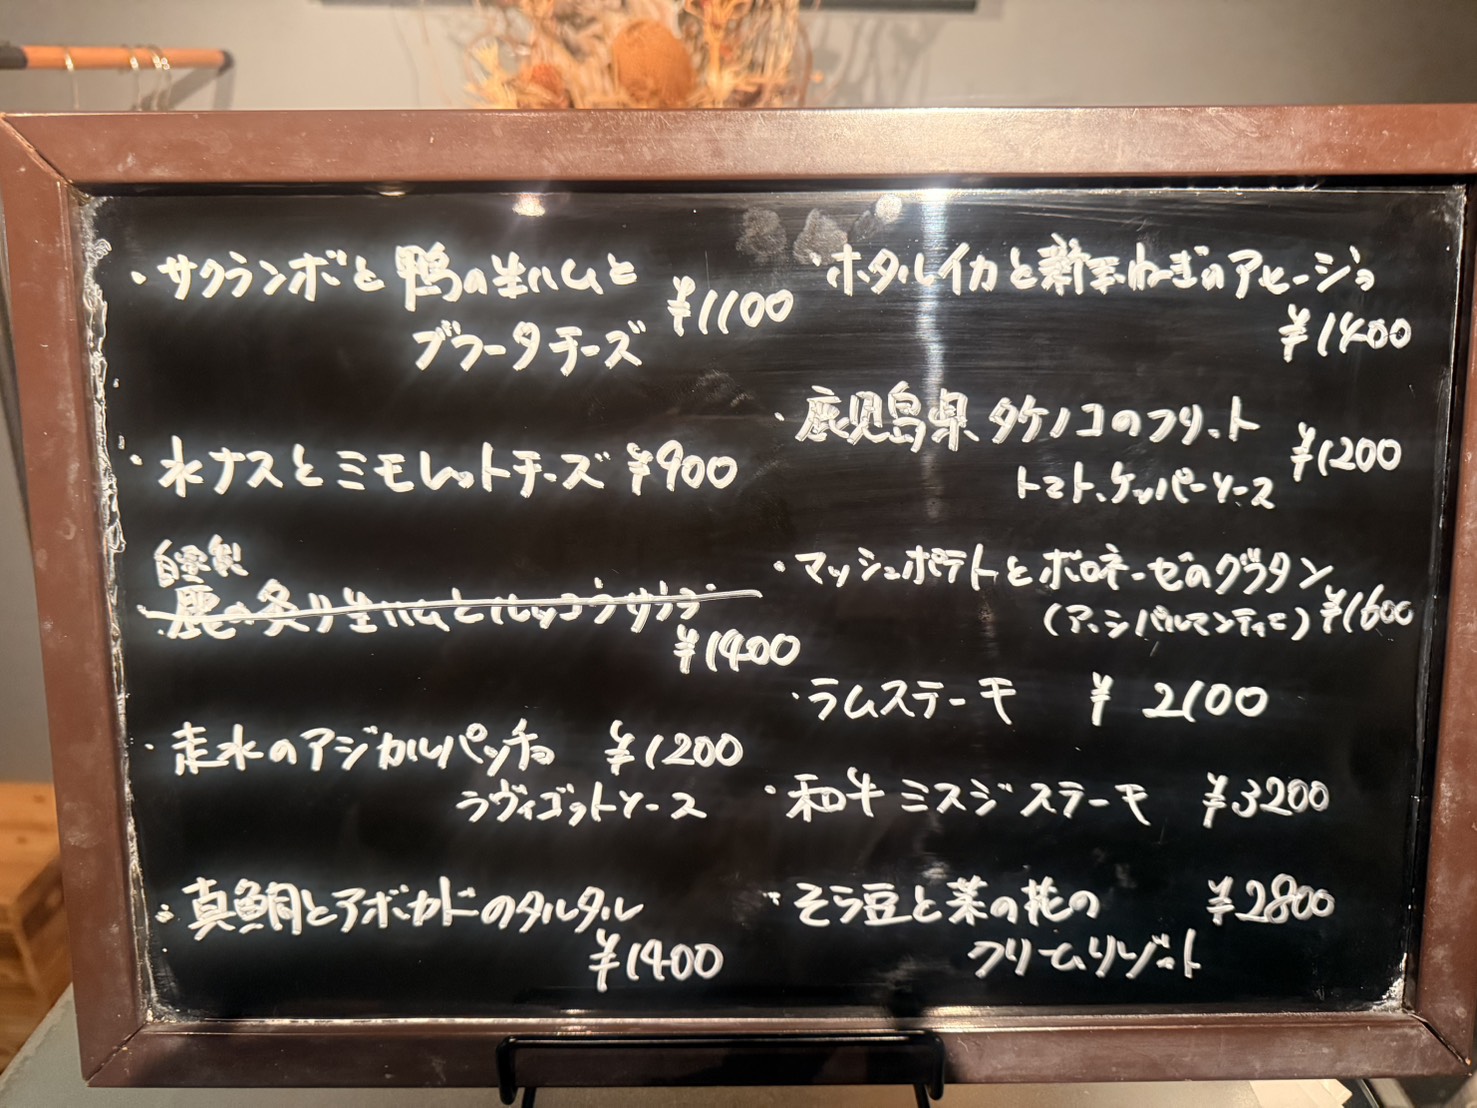 ・サクランボと鴨の生ハムと
ブラータチーズ ¥1100
・水ナスとミモレットチーズ ¥900
自家製
・鹿の炙り生ハムとルッコラサラダ
¥1400
・走水のアジカルパッチョ ¥1200
ラヴィゴットソース
・真鯛とアボカドのタルタル
¥1400
・ホタルイカと新玉ねぎのアヒージョ
¥1400
・鹿児島県タケノコのフリット
トマト、ケッパーソース ¥1200
・マッシュポテトとボロネーゼのグラタン
(アッシパルマンティエ) ¥1600
・ラムステーキ ¥2100
・和牛ミスジステーキ ¥3200
・そら豆と菜の花の ¥2800
クリームリゾット